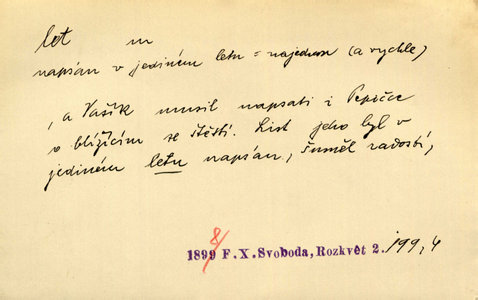 let m
napsán v jediném letu = najednou (a rychle)
, a Vašík musil napsati i Pepičce
o blížícím se štěstí. List jeho byl v
jediném letu napsán, šuměl radostí,
8/
1899 F. X. Svoboda, Rozkvět 2. 199, 4